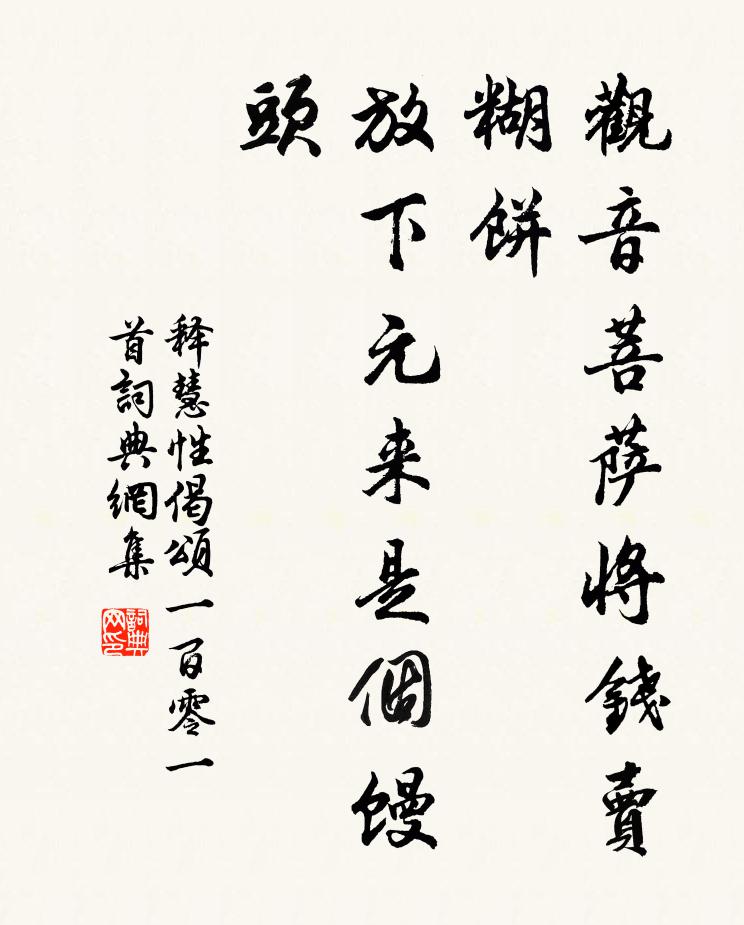 觀音菩萨將錢賣
糊餅
放下元来是個馒
頭
释慧性偈頌一百零一
首詞典網集
詞典
网印